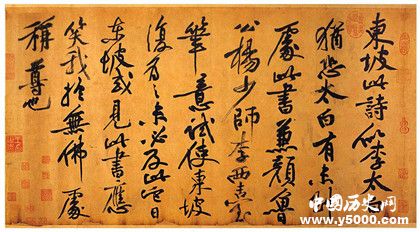 東坡此詩似李太白
猶恐太白有未到
處此書兼顏魯
公楊少師李西臺
筆意試使東坡
復為之未必及此它日
東坡或見此書應
笑我於無佛處
稱尊也
中国历史网
www.y5000.com